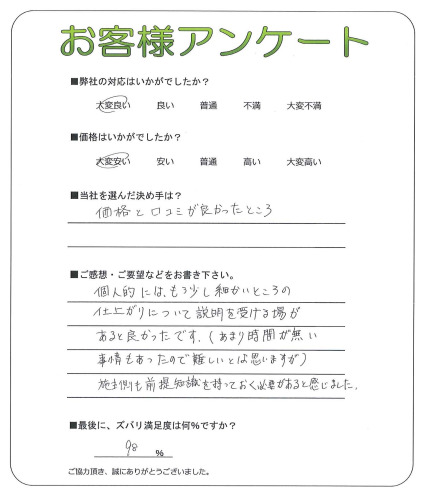 お客様アンケート
■弊社の対応はいかがでしたか？
大変良い 良い 普通 不満 大変不満
■価格はいかがでしたか？
大変安い 安い 普通 高い 大変高い
■当社を選んだ決め手は？
価格と口コミが良かったところ
■ご感想・ご要望などをお書き下さい。
個人的には、もう少し細かいところの
仕上がりについて説明を受ける場が
あると良かったです。（あまり時間が無い
事情もあったので難しいとは思いますが）
施主側も前提知識を持っておく必要があると感じました。
■最後に、ズバリ満足度は何％ですか？
98 ％
ご協力頂き、誠にありがとうございました。